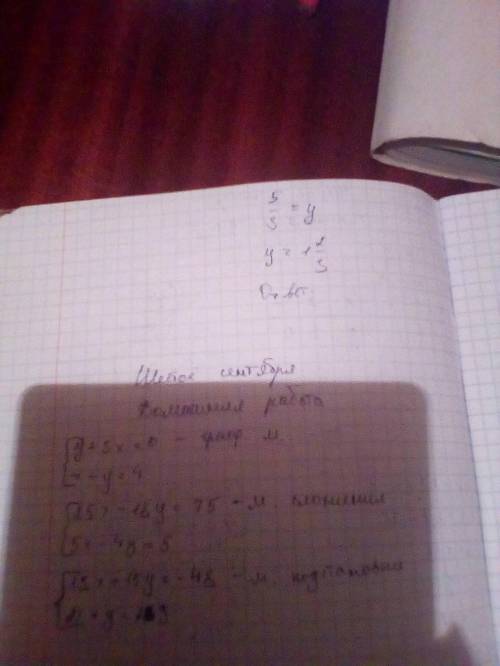 5/3 = y
y = 1 2/3
Ответ:
Шестое сентября
Домашняя работа
y + 5x = 0 - граф. м.
x - y = 4
15x - 18y = 75 - м. сложения
5x - 4y = 5
- м. подстановки